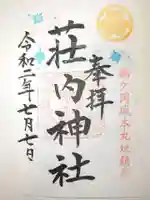 奉拝
鶴ヶ岡城本丸址鎮座
荘内神社
令和二年七月七日